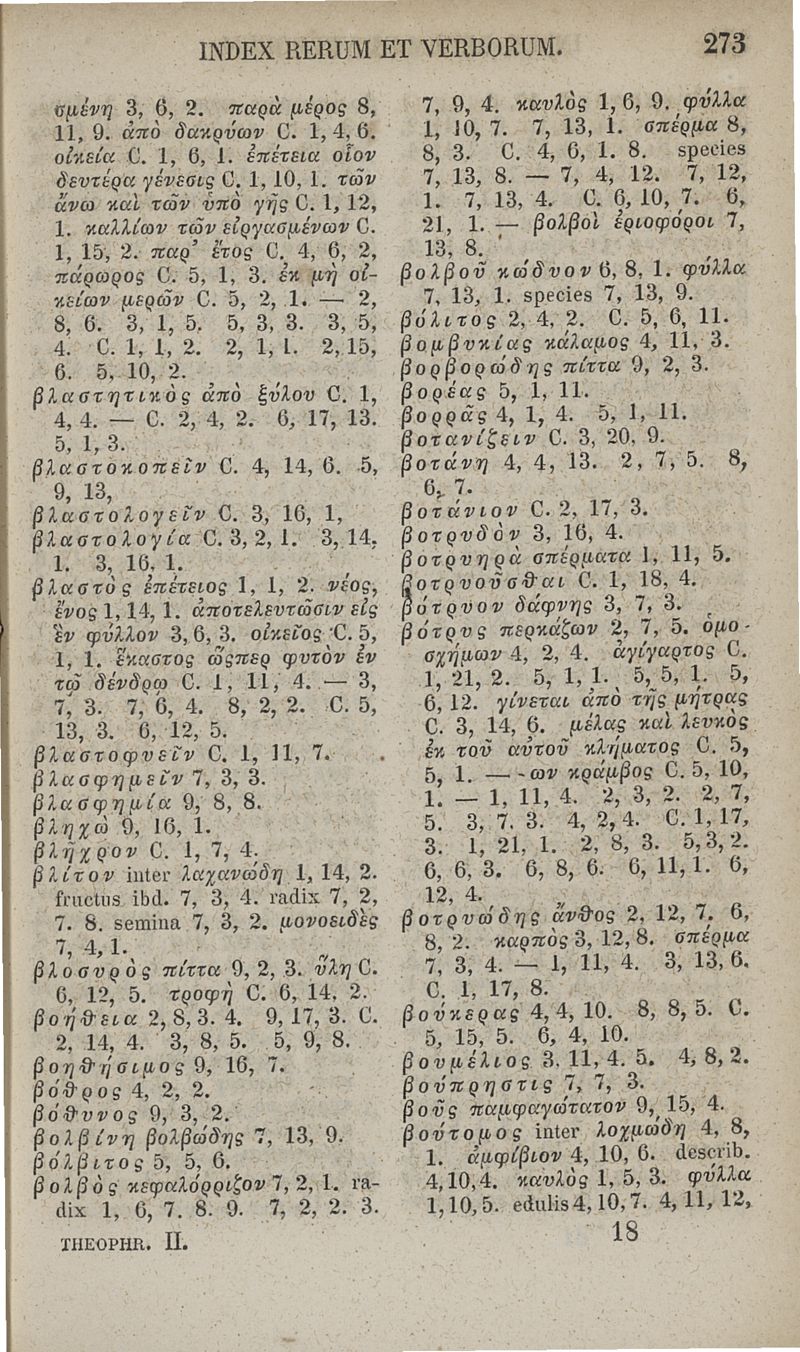 INDEX RERUM ET VERBORUM. 273
σμένη 3, 6, 2. παρὰ μέρος 8,
11, 9. ἀπὸ δακρύων C. 1, 4, 6.
οἰκεία C. 1, 6, 1. ἐπέτεια οἷον
δευτέρα γένεσις C. 1, 10, 1. τῶν
ἄνω καὶ τῶν ὑπὸ γῆς C. 1, 12,
1. καλλίων τῶν εἰργασμένων C.
1, 15, 2. παρ’ ἔτος C. 4, 6, 2,
πάρωρος C. 5, 1, 3. ἐκ μὴ οἰ-
κείων μερῶν C. 5, 2, 1. — 2,
8, 6. 3, 1, 5. 5, 3, 3. 3, 5,
4. C. 1, 1, 2. 2, 1, 1. 2, 15,
6. 5, 10, 2.
βλαστητικὸς ἀπὸ ξύλου C. 1,
4, 4. — C. 2, 4, 2. 6, 17, 13.
5, 1, 3.
βλαστοκοπεῖν C. 4, 14, 6. 5,
9, 13,
βλαστολογεῖν C. 3, 16, 1,
βλαστολογία C. 3, 2, 1. 3, 14,
1. 3, 16, 1.
βλαστὸς ἐπέτειος 1, 1, 2. νέος,
ἔνος 1, 14, 1. ἀποτελευτῶσιν εἰς
ἓν φύλλον 3, 6, 3. οἰκεῖος C. 5,
1, 1. ἕκαστος ὥςπερ φυτὸν ἐν
τῷ δένδρῳ C. 1, 11, 4. — 3,
7, 3. 7, 6, 4. 8, 2, 2. C. 5,
13, 3. 6, 12, 5.
βλαστοφυεῖν C. 1, 11, 7.
βλασφημεῖν 7, 3, 3.
βλασφημία 9, 8, 8.
βληχὼ 9, 16, 1.
βλῆχρον C. 1, 7, 4.
βλίτον inter λαχανώδη 1, 14, 2.
fructus ibd. 7, 3, 4. radix 7, 2,
7. 8. semina 7, 3, 2. μονοειδὲς
7, 4, 1.
βλοσυρὸς πίττα 9, 2, 3. ὕλη C.
6, 12, 5. τροφὴ C. 6, 14, 2.
βοήθεια 2, 8, 3. 4. 9, 17, 3. C.
2, 14, 4. 3, 8, 5. 5, 9, 8.
βοηθήσιμος 9, 16, 7.
βόθρος 4, 2, 2.
βόθυνος 9, 3, 2.
βολβίνη βολβώδης 7, 13, 9.
βόλβιτος 5, 5, 6.
βολβὸς κεφαλόρριζον 7, 2, 1. ra-
dix 1, 6, 7. 8. 9. 7, 2, 2. 3.
THEOPHR. II.
7, 9, 4. καυλὸς 1, 6, 9. φύλλα
1, 10, 7. 7, 13, 1. σπέρμα 8,
8, 3. C. 4, 6, 1. 8. species
7, 13, 8. — 7, 4, 12. 7, 12,
1. 7, 13, 4. C. 6, 10, 7. 6,
21, 1. — βολβοὶ ἐριοφόροι 7,
13, 8.
βολβοῦ κώδυον 6, 8, 1. φύλλα
7, 13, 1. species 7, 13, 9.
βόλιτος 2, 4, 2. C. 5, 6, 11.
βομβυκίας κάλαμος 4, 11, 3.
βορβορώδης πίττα 9, 2, 3.
βορέας 5, 1, 11.
βορρᾶς 4, 1, 4. 5, 1, 11.
βοτανίζειν C. 3, 20, 9.
βοτάνη 4, 4, 13. 2, 7, 5. 8,
6, 7.
βοτάνιον C. 2, 17, 3.
βοτρυδὸν 3, 16, 4.
βοτρυηρὰ σπέρματα 1, 11, 5.
βοτρυοῦσθαι C. 1, 18, 4.
βότρυον δάφνης 3, 7, 3.
βότρυς περκάζων 2, 7, 5. ὁμο-
σχήμων 4, 2, 4. ἀγίγαρτος C.
1, 21, 2. 5, 1, 1. 5, 5, 1. 5,
6, 12. γίνεται ἀπὸ τῆς μήτρας
C. 3, 14, 6. μέλας καὶ λευκὸς
ἐκ τοῦ αὐτοῦ κλήματος C. 5,
5, 1. — -ων κράμβος C. 5, 10,
1. — 1, 11, 4. 2, 3, 2. 2, 7,
5. 3, 7, 3. 4, 2, 4. C. 1, 17,
3. 1, 21, 1. 2, 8, 3. 5, 3, 2.
6, 6, 3. 6, 8, 6. 6, 11, 1. 6,
12, 4.
βοτρυώδης ἄνθος 2, 12, 7. 6,
8, 2. καρπὸς 3, 12, 8. σπέρμα
7, 3, 4. — 1, 11, 4. 3, 13, 6.
C. 1, 17, 8.
βούκερας 4, 4, 10. 8, 8, 5. C.
5, 15, 5. 6, 4, 10.
βουμέλιος 3, 11, 4. 5. 4, 8, 2.
βούπρηστις 7, 7, 3.
βοῦς παμφαγώτατον 9, 15, 4.
βούτομος inter λοχμώδη 4, 8,
1. ἀμφίβιον 4, 10, 6. describ.
4, 10, 4. καυλὸς 1, 5, 3. φύλλα
1, 10, 5. edulis 4, 10, 7. 4, 11, 12,
18